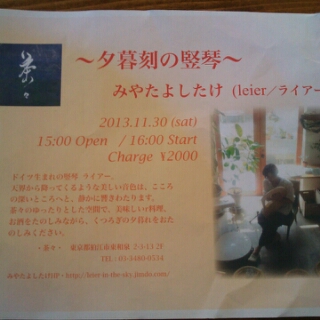 茶々
〜夕暮刻の竪琴〜
みやたよしたけ (leier／ライアー
2013.11.30 (sat)
15:00 Open / 16:00 Start
Charge ¥2000
ドイツ生まれの竪琴 ライアー。
天界から降ってくるような美しい音色は、こころ
の深いところへと、静かに響きわたります。
茶々のゆったりとした空間で、美味しい料理、
お酒をたのしみながら、くつろぎの夕暮れをおた
のしみください。
・茶々・ 東京都狛江市東和泉 2F
TEL：03-3480-0534
みやたよしたけHP・http://leier-in-the-sky.jimdo.com/